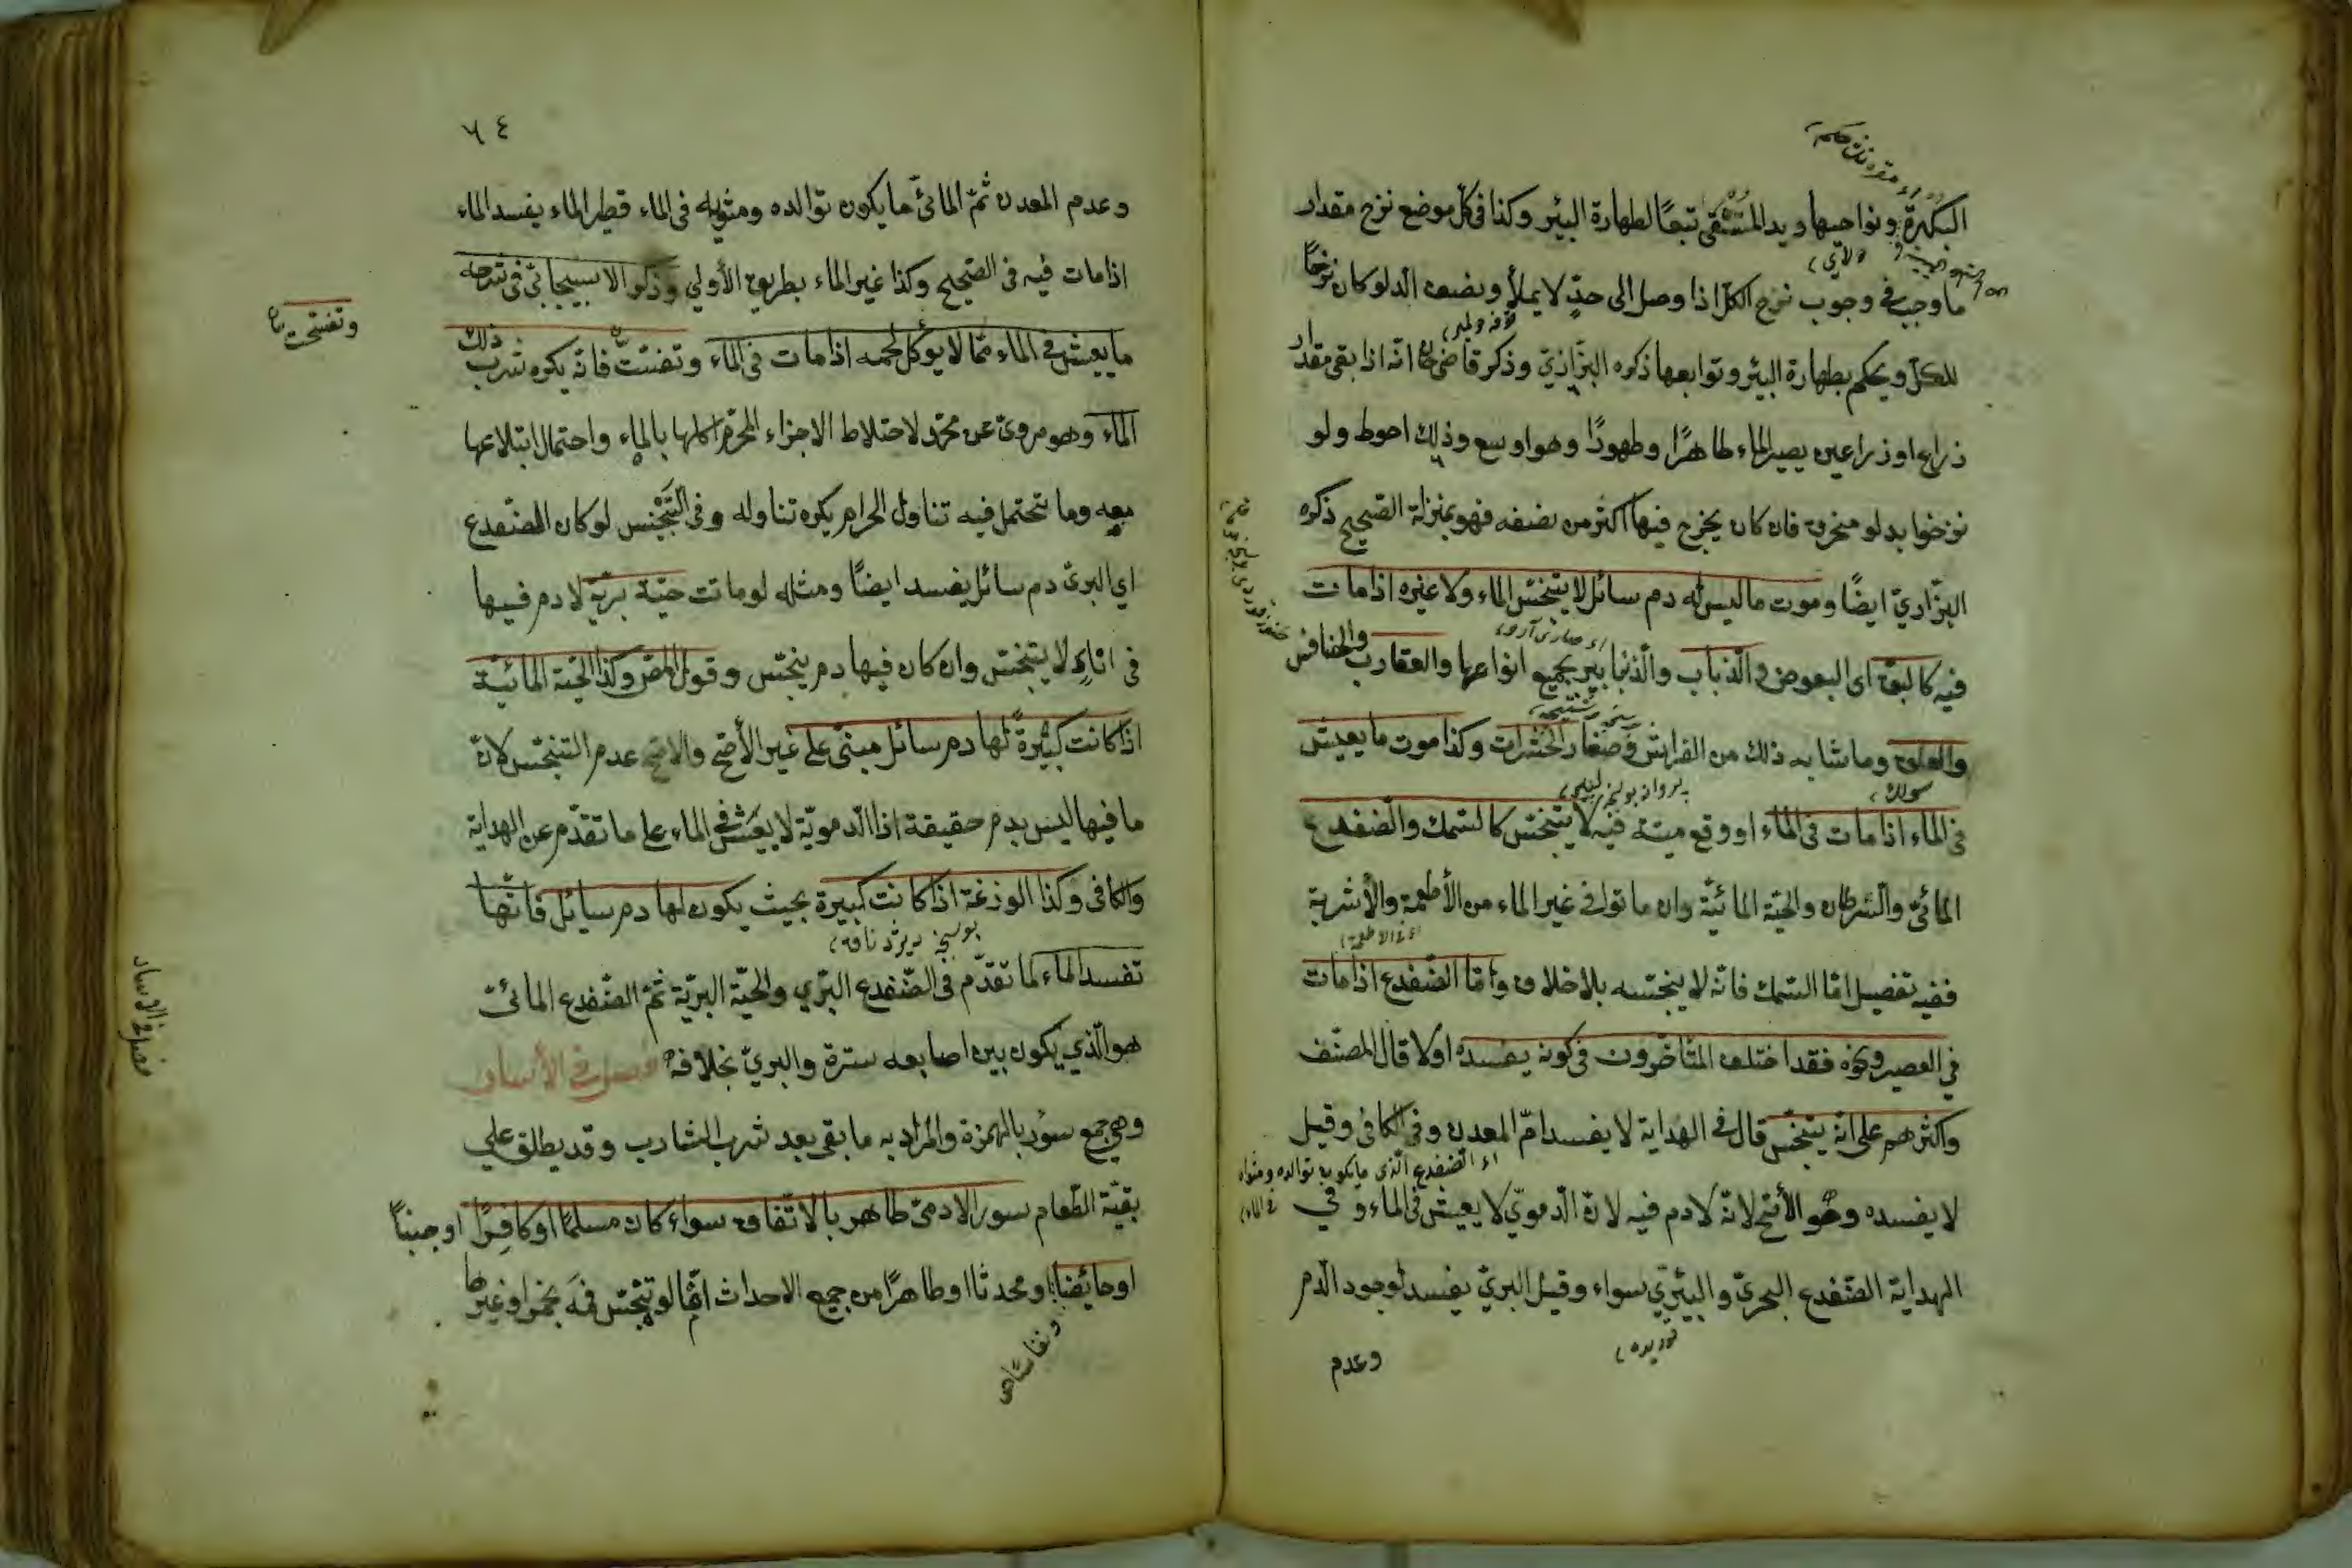 البكرة ونواحيها ويد المستقى تبعًا لطهارة البئر وكذا فى كل موضع نزح مقدار
ما وجب فى وجوب نزح الكل اذا وصل الى حدٍّ لا يملأ ونصف الدلو كان نزحًا
للكل ويحكم بطهارة البئر وتوابعها ذكره البزازىّ وذكر قاضى خان انّه اذا بقى مقدار
ذراع او ذراعين يصير الماء طاهرًا وطهورًا وهو اوسع وذلك احوط ولو
نزحوا بدلو منخرق فان كان يخرج فيها اكثر من نصفه فهو بمنزلة الصّحيح ذكره
البزّازىّ ايضًا وموت ما ليس له دم سائل لا يتنجّس الماء ولا غيره اذا مات
فيه كالبقّ اى البعوض والذّباب والذنابير بجميع انواعها والعقارب والخنافس
والعلق وما شابه ذلك من الفراش وصغار الحشرات وكذا موت ما يعيش
فى الماء اذا مات فى الماء او وقع ميتة فيه لا يتنجّس كالسّمك والضّفدع
المائىّ والسّرطان والحيّة المائيّة وان ماتوا فى غير الماء من الأطعمة والأشربة
ففيه تفصيل امّا السّمك فانّه لا ينجّسه بلا خلاف وامّا الضّفدع اذا مات
فى العصير ونحوه فقد اختلف المتأخّرون فى كونه يفسده اولا قال المصنّف
واكثرهم على انّه يتنجّس قال فى الهداية لا يفسد لعدم المعدن وفى الكافى وقيل
اى الضفدع الّذى ما يكون توالده ومثواه
فى الماء
لا يفسده وهو الأصح لانّه لا دم فيه لانّ الدّموىّ لا يعيش فى الماء وفي
الهداية الضّفدع البحرىّ والبرّىّ سواء وقيل البرىّ يفسد لوجود الدّم
وعدم
٦٤
وعدم المعدن ثمّ المائىّ ما يكون توالده ومثويه فى الماء قطير الماء يفسد الماء
اذا مات فيه فى الصّحيح وكذا غير الماء بطريق الأولي وذكر الاسبيجابىّ فى شرحه
ما يعيش فى الماء ممّا لا يؤكل لحمه اذا مات فى الماء وتفتّت فانّه يكره شرب ذلك
الماء وهو مروىّ عن محمّد لاختلاط الاجزاء المحرّم اكلها بالماء واحتمال ابتلاعها
معه وما تحتمل فيه تناول الحرام يكره تناوله وفى التّجنيس لو كان للضّفدع
اي البرىّ دم سائل يفسد ايضًا ومثله لو ماتت حيّة بريّة لا دم فيها
فى اناءٍ لا يتنجّس وان كان فيها دم ينجّس وقول المص وكذا الحيّة المائيّة
اذا كانت كبيرة لها دم سائل مبنىّ على غير الأصحّ والاصحّ عدم التنجّس لانّ
ما فيها ليس بدم حقيقة اذ الدّمويّة لا يعيش فى الماء على ما تقدّم عن الهداية
والكافى وكذا الوزغة اذا كانت كبيرة بحيث يكون لها دم سايل فانّها
تفسد الماء لما تقدّم فى الضّفدع البرّي والحيّة البريّة ثمّ الضّفدع المائىّ
هو الّذي يكون بين اصابعه سترة والبرىّ بخلافه فصل في الأسار
وهي جمع سؤر بالهمزة والمراد به ما بقى بعد شرب الشارب وقد يطلق علي
بقيّة الطّعام سور الادمىّ طاهر بالاتّفاق سواء كان مسلمًا او كافرًا او جنبًا
او حائضًا او محدثا او طاهرًا من جميع الاحداث امّا لو تنجّس فمه بخمر او غيرها
فصل فى الاسار